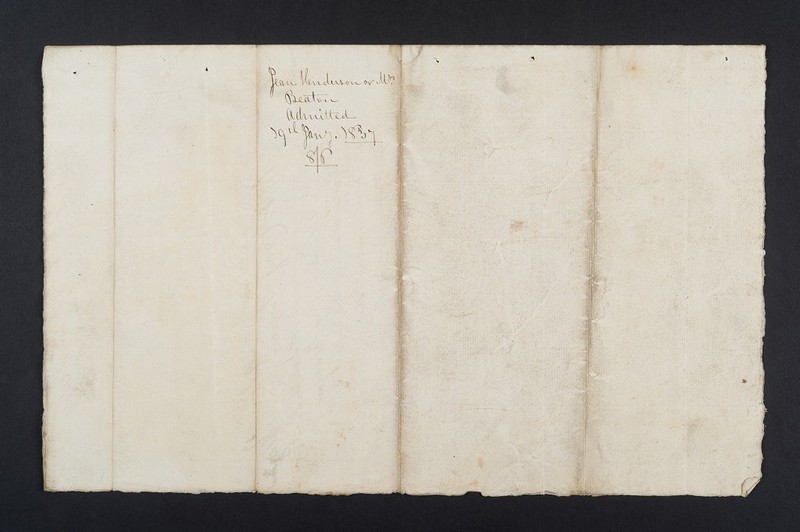 Jean Henderson or Mrs
Beaton
Admitted
19th Jany. 1837
8/6